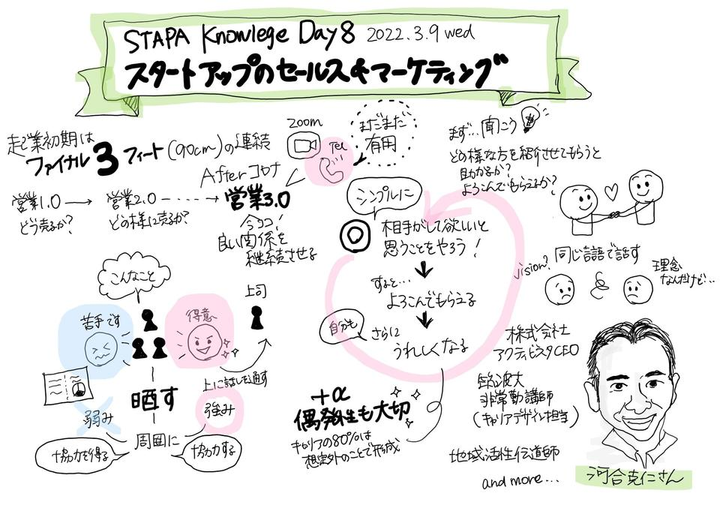 STAPA Knowlege Day8 2022.3.9 wed
スタートアップのセールス&マーケティング
起業初期は
ファイナル3フィート(90cm)の連続
営業1.0
どう売るか?
営業2.0
どの様に売るか?
Afterコロナ
営業3.0
今ココ!
良い関係を
継続させる
zoom
Tel
まだまだ
有用
まず…聞こう
どの様な方を紹介させてもらうと
助かるか?
よろこんでもらえるか?
シンプルに
相手がして欲しいと
思うことをやろう!
すると…
よろこんでもらえる
自分も
さらに
うれしくなる
vision?
同じ言語で話す
理念
なんだけど…
こんなこと
苦手です
得意
上司
上に話しも通す
晒す
弱み
強み
周囲に
協力を得る
協力する
+α
偶発性も大切
キャリアの80%は
想定外のことで形成
株式会社
アクティビスタCEO
筑波大
非常勤講師
(キャリアデザイン担当)
地域活性伝道師
and more...
河合克仁さん